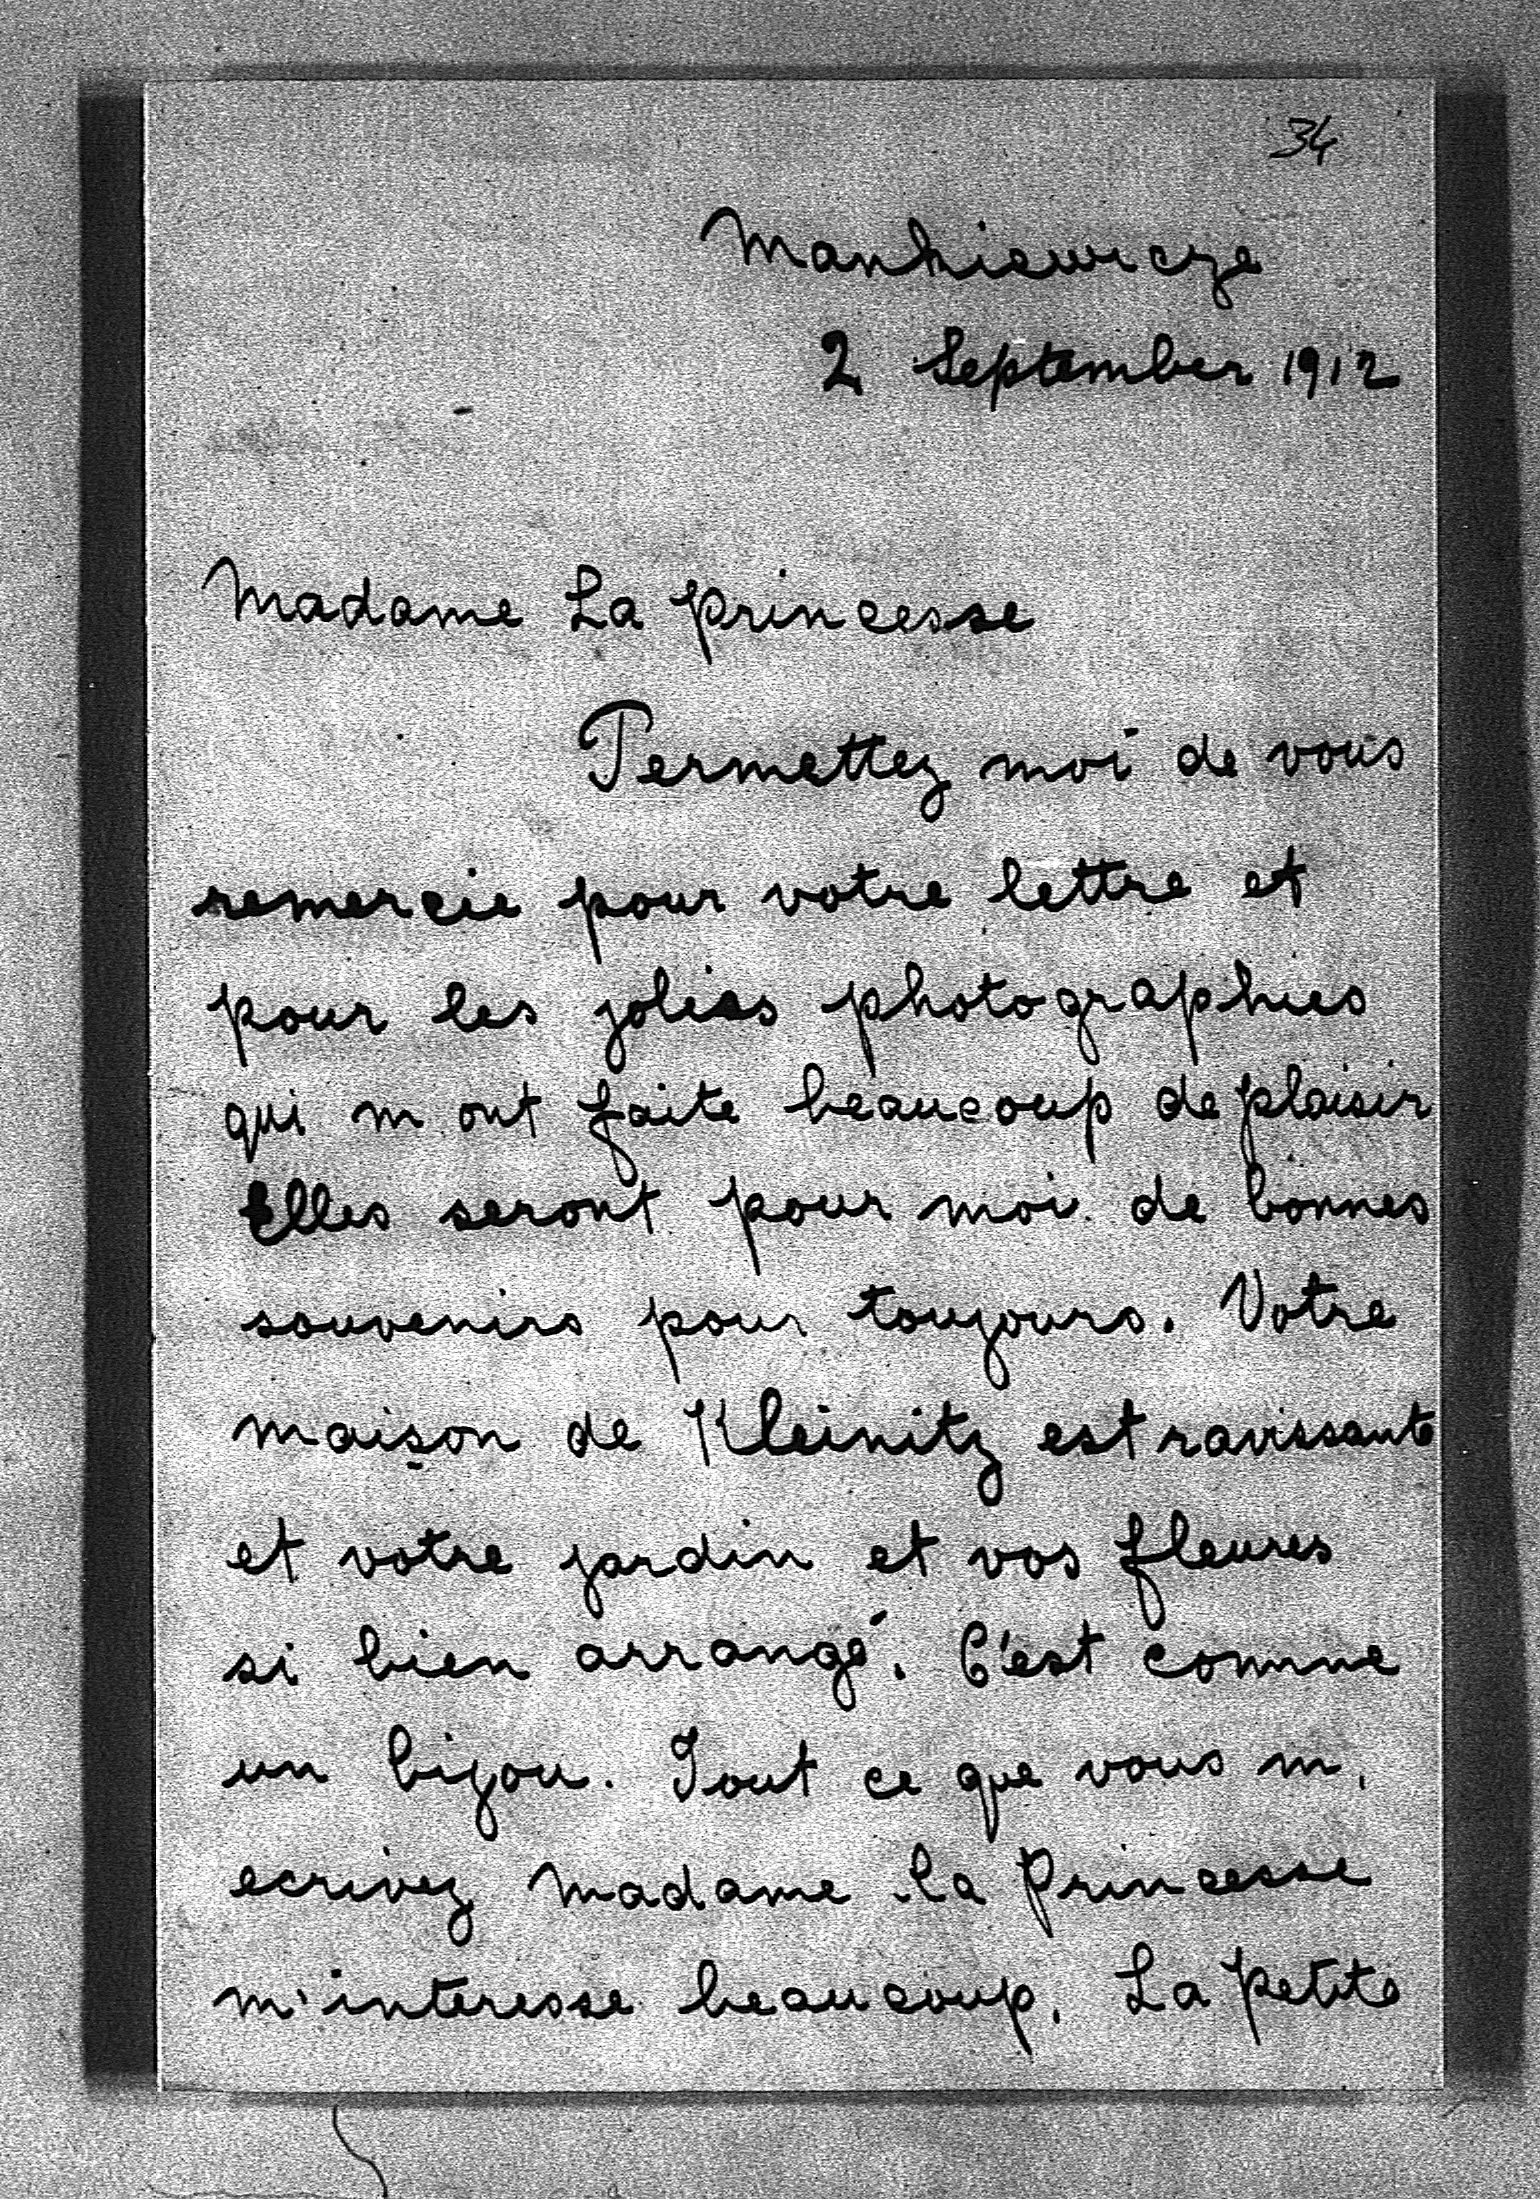 34
Mankiewicze
2 September 1912
Madame La princesse
Permettez moi de vous
remercie pour votre lettre et
pour les jolies photographies
qui m ont faite beaucoup de plaisir
Elles seront pour moi de bonnes
souvenirs pour toujours. Votre
maison de Kleinitz est ravissante
et votre jardin et vos fleures
si bien arrangé. C'est comme
un bijou. Tout ce que vous m,
ecrivez Madame la Princesse
m'interesse beaucoup. La petite